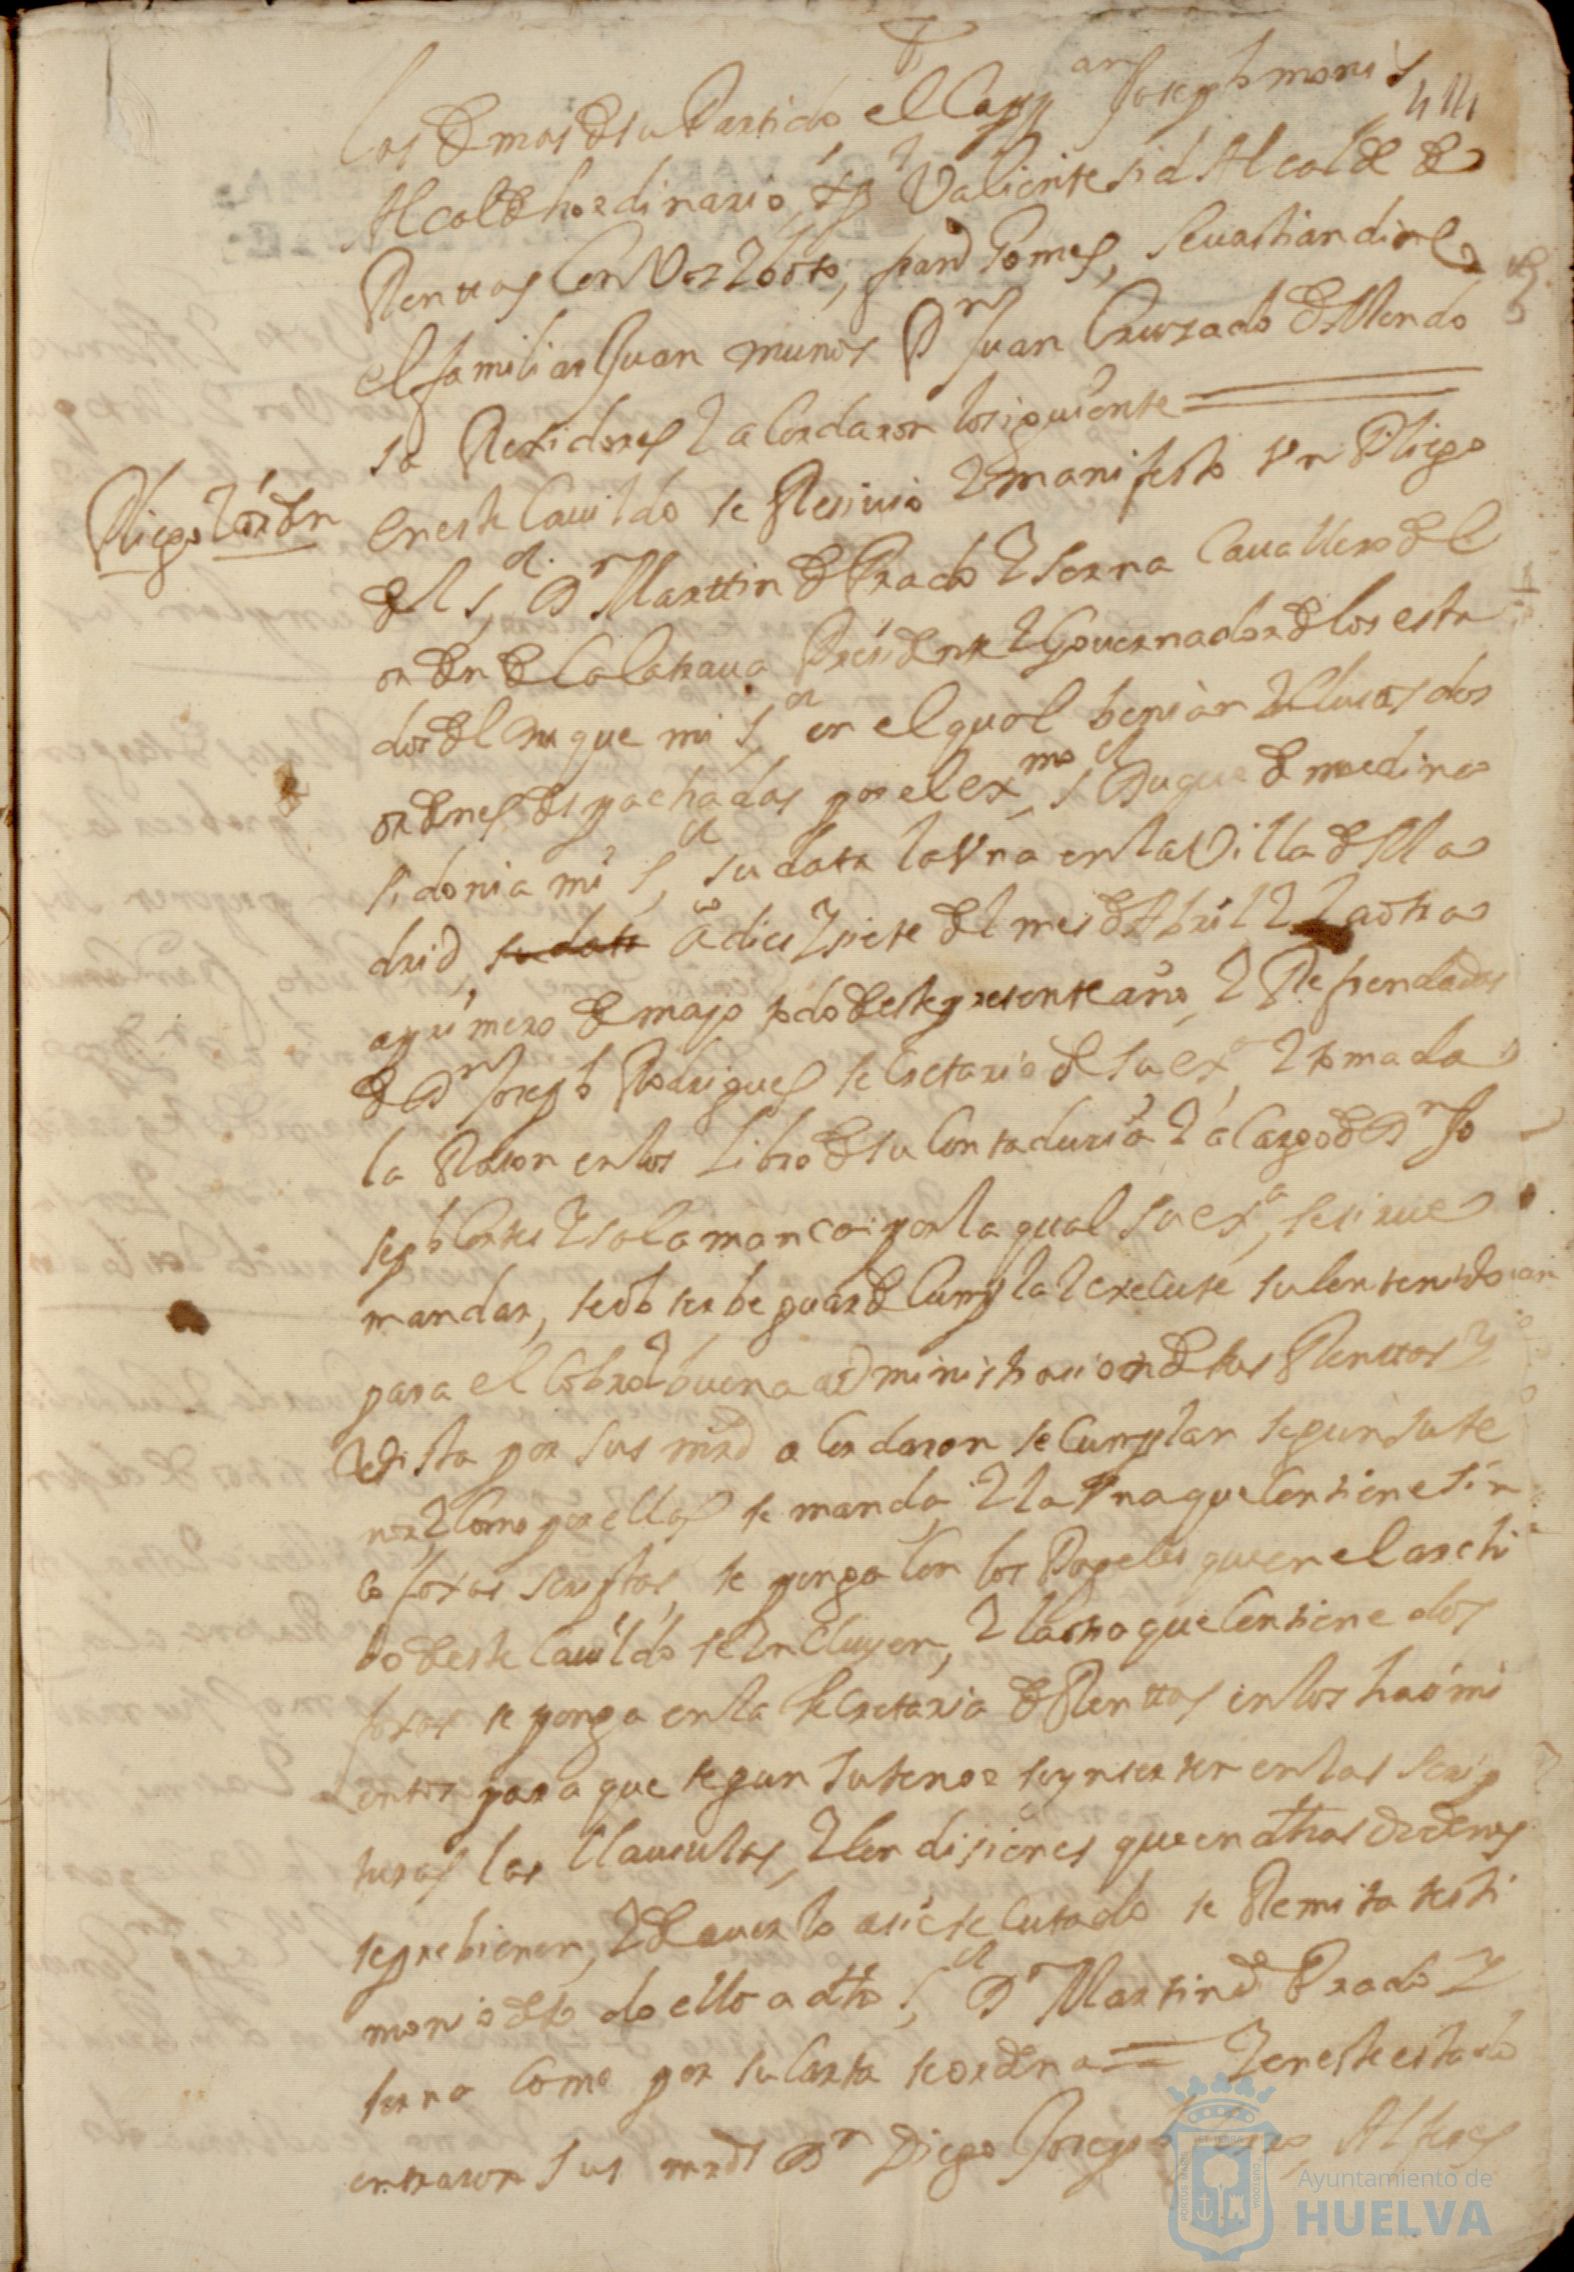 414
los demas de su Partido, el Capp an Joseph moris
Alcalde hordinario, Valiente sid Alcalde de
Renttas Con Voz y boto, fran Gomes, Sevastian dines
el familiar Juan munos Dn Juan Cruzado de Mendo
sa Rexidores y acordaron lo siguiente
Pliego y orden
en este Cavildo se Resivio y manifesto vn Pliego
del Sr Dn Marttin de Prado y serna Cavallero del
orden de Calatrava Presidente y Governador de los esta
dos del Duque mi Sr en el qual benian Ynclusas dos
ordenes despachadas por el exmo Sr Duque de medina
sidonia mi Sr, su data la vna en la Villa de Ma
drid, su data a dies y siete del mes de Abril y la otra
a primero de mayo todo de este presente año, y Refrendadas
de Dn Joseph Rodrigues secretario de su exa y tomada
la Rason en los Libro de su Contaduria y a Cargo de Dn Jo
seph Cortes y salamanca: por la qual su exa, se sirve
mandar, se obserbe guarde Cumpla y execute su Contenido
para el Cobro y buena administrasion de sus Renttas y
Vista por sus mrd acordaron se Cumplan segun su te
nor y Como por ellas se manda, y la vna que Contiene sin
co foxas scriptas, se ponga Con los Papeles que en el archi
bo de este Cavildo se Yncluyen, y la otra que Contiene dos
foxas se ponga en la secretaria de Renttas en los hasimi
entos para que segun su tenor se ynserten en las scrip
turas las Clausulas, y Condisiones que en dhas ordenes
se prebienen, y de averlo asi esecutado se Remita testi
monio de todo ello a dho Sr Dn Martin de Prado y
serna Como por su Carta se ordena = Y en este estado
entraron sus mrds Dn Diego Joseph Alferes
Ayuntamiento de
HUELVA